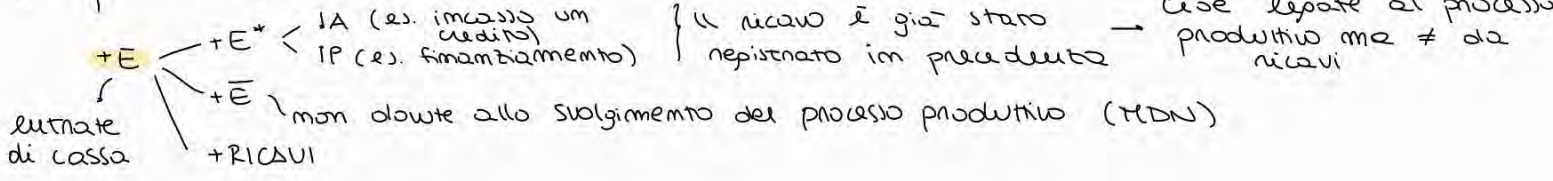 +E
entrate di cassa
+E* < ↓A (es. incasso un credito)
↓P (es. finanziamento)
} il ricavo è già stato registrato in precedenza → cose legate al processo produttivo ma ≠ da ricavi
+Ē \ non dovute allo svolgimento del processo produttivo (MDN)
+RICAVI